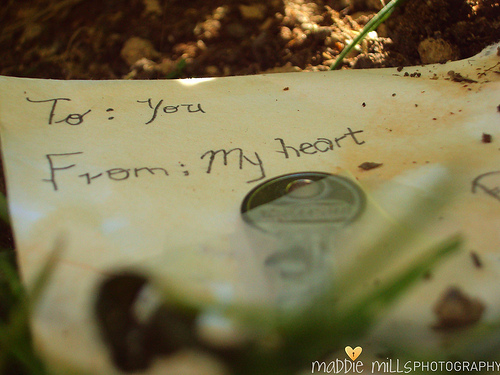 To: You
From: My heart
maddie millsPHOTOGRAPHY